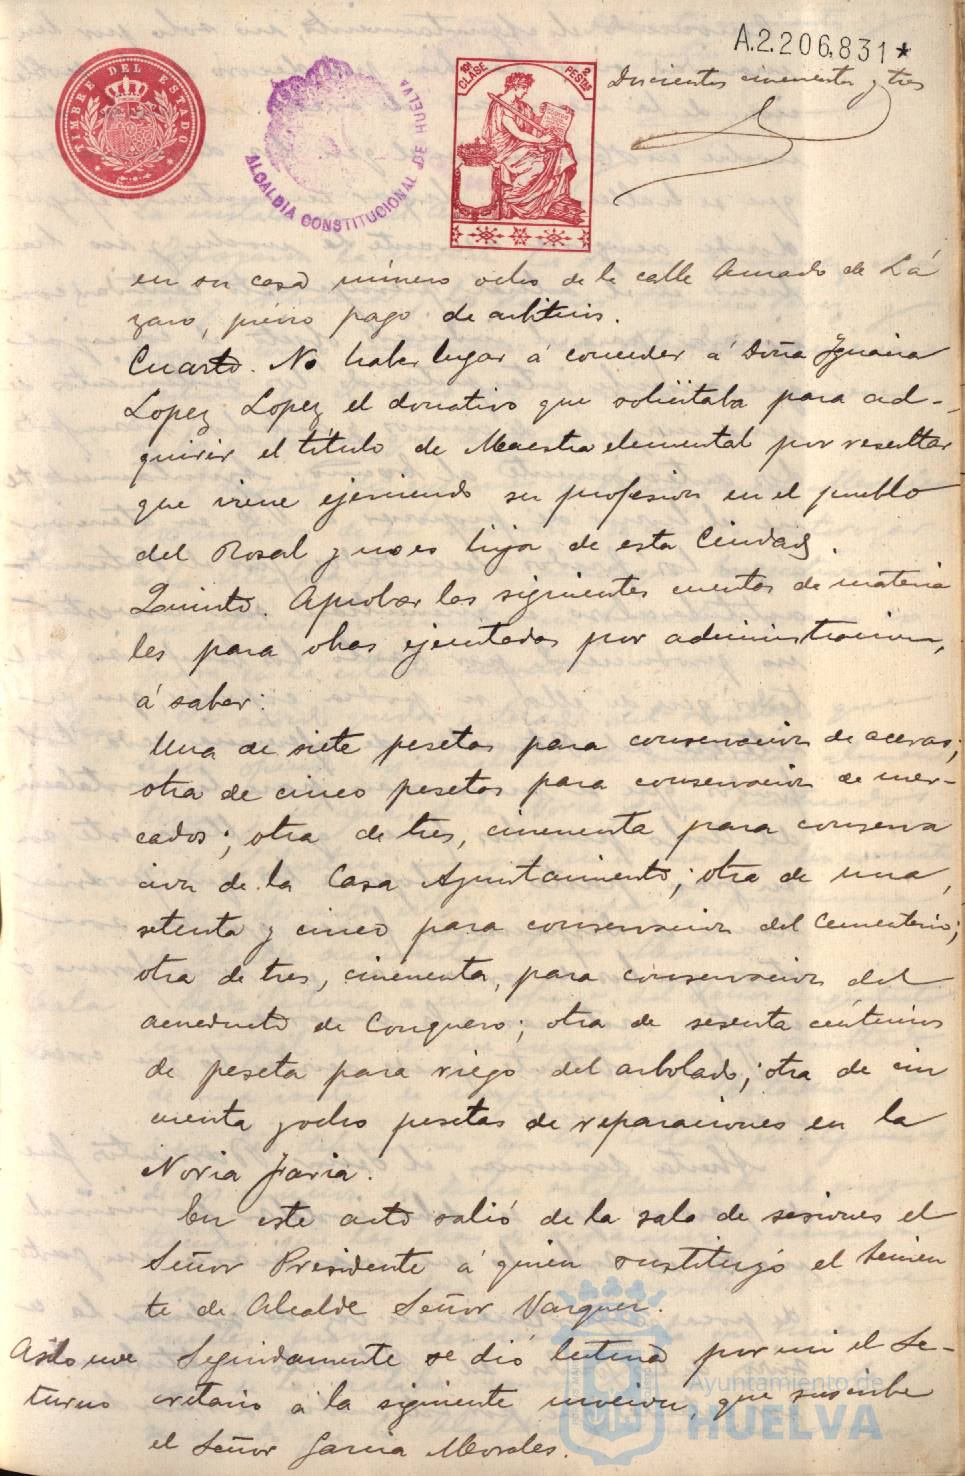 A.2.206.831★
Doscientos cincuenta y tres
TIMBRE DEL ESTADO
ALCALDIA CONSTITUCIONAL DE HUELVA
10ª CLASE
2 PESTAS
en su casa número ocho de la calle Amado de Lá
zaro, prévio pago de arbitrios.
Cuarto. No haber lugar á conceder á Doña Ignacia
Lopez Lopez el donativo que solicitaba para ad-
quirir el título de Maestra elemental por resultar
que viene ejerciendo su profesion en el pueblo
del Rosal y no es hija de esta Ciudad.
Quinto. Aprobar las siguientes cuentas de materia
les para obras ejecutadas por administracion,
á saber:
Una de siete pesetas para conservacion de aceras;
otra de cinco pesetas para conservacion de mer-
cados; otra de tres, cincuenta para conserva
cion de la Casa Ayuntamiento; otra de una,
setenta y cinco para conservacion del Cementerio;
otra de tres, cincuenta, para conservacion del
acueducto de Conquero; otra de sesenta céntimos
de peseta para riego del arbolado; otra de cin
cuenta y ocho pesetas de reparaciones en la
Noria Jaria.
En este acto salió de la sala de sesiones el
Señor Presidente á quien sustituyó el Tenien
te de Alcalde Señor Vazquez.
Asilo noc
turno
Seguidamente se dió lectura por mi el Se-
cretario á la siguiente mocion, que suscribe
el Señor Garcia Morales.
Ayuntamiento de
HUELVA